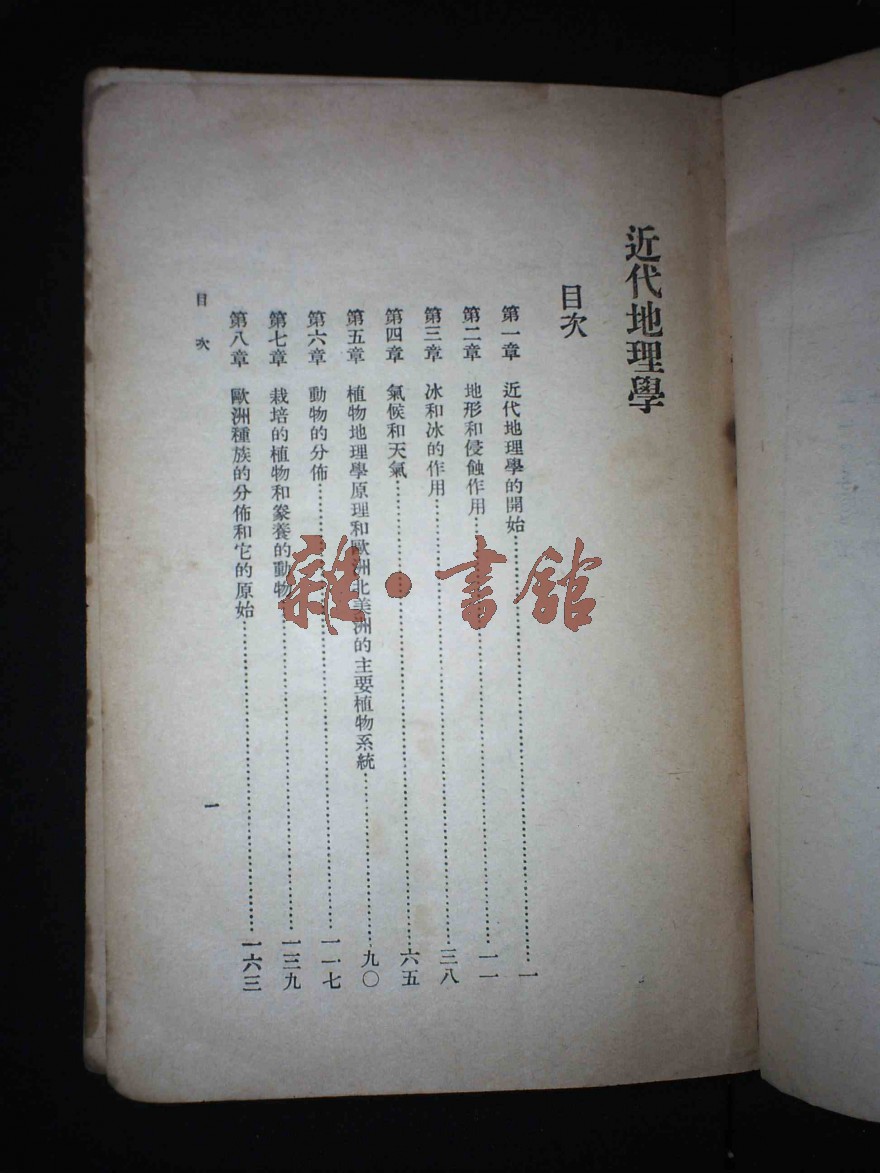 近代地理學
目次
第一章 近代地理學的開始……一
第二章 地形和侵蝕作用……一一
第三章 冰和冰的作用……三八
第四章 氣候和天氣……六五
第五章 植物地理學原理和歐洲北美洲的主要植物系統……九〇
第六章 動物的分佈……一一七
第七章 栽培的植物和豢養的動物……一三九
第八章 歐洲種族的分佈和它的原始……一六三
目次
一
雜·書館